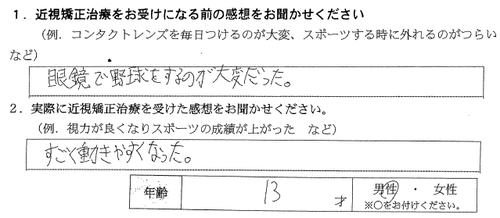 1．近視矯正治療をお受けになる前の感想をお聞かせください
（例．コンタクトレンズを毎日つけるのが大変、スポーツする時に外れるのがつらい
など）
眼鏡で野球をするのが大変だった。
2．実際に近視矯正治療を受けた感想をお聞かせください。
（例．視力が良くなりスポーツの成績が上がった　など）
すごく動きやすくなった。
年齢 13 才 男性 ・ 女性
※○をお付けください。